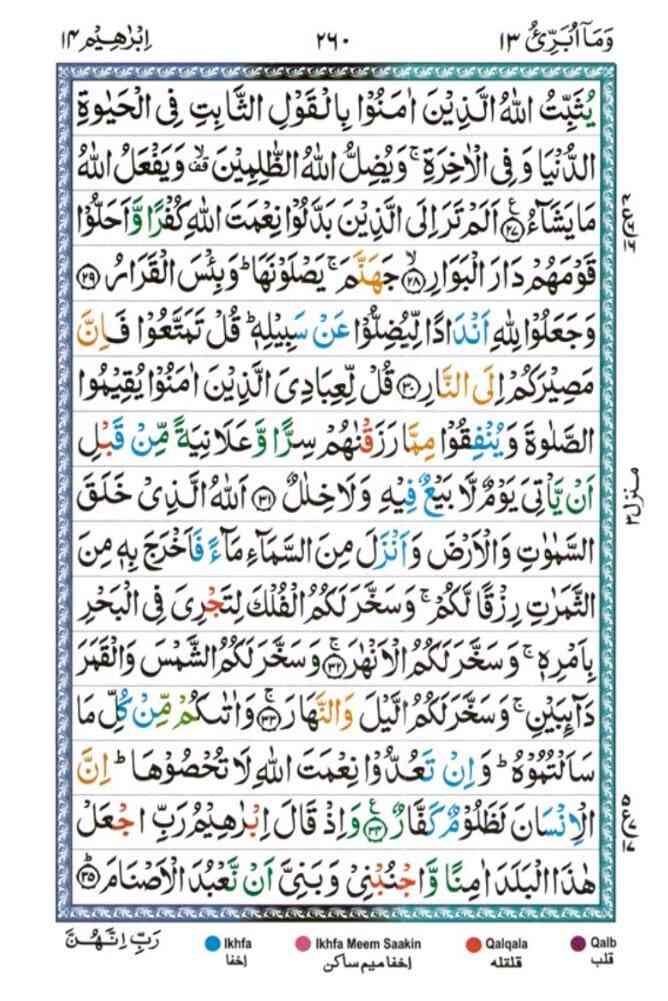 وَمَآ اُبَرِّئُ ١٣
٢٦٠
اِبْرٰهِيْم ١٤
يُثَبِّتُ اللّٰهُ الَّذِيْنَ اٰمَنُوْا بِالْقَوْلِ الثَّابِتِ فِى الْحَيٰوةِ
الدُّنْيَا وَفِى الْاٰخِرَةِ ۚ وَيُضِلُّ اللّٰهُ الظّٰلِمِيْنَ ۙ وَيَفْعَلُ اللّٰهُ
مَا يَشَآءُ ﴿٢٧﴾ اَلَمْ تَرَ اِلَى الَّذِيْنَ بَدَّلُوْا نِعْمَتَ اللّٰهِ كُفْرًا وَّاَحَلُّوْا
قَوْمَهُمْ دَارَ الْبَوَارِ ﴿٢٨﴾ جَهَنَّمَ ۚ يَصْلَوْنَهَا ؕ وَبِئْسَ الْقَرَارُ ﴿٢٩﴾
وَجَعَلُوْا لِلّٰهِ اَنْدَادًا لِّيُضِلُّوْا عَنْ سَبِيْلِهٖ ؕ قُلْ تَمَتَّعُوْا فَاِنَّ
مَصِيْرَكُمْ اِلَى النَّارِ ﴿٣٠﴾ قُلْ لِّعِبَادِىَ الَّذِيْنَ اٰمَنُوْا يُقِيْمُوا
الصَّلٰوةَ وَيُنْفِقُوْا مِمَّا رَزَقْنٰهُمْ سِرًّا وَّعَلَانِيَةً مِّنْ قَبْلِ
اَنْ يَّاْتِىَ يَوْمٌ لَّا بَيْعٌ فِيْهِ وَلَا خِلٰلٌ ﴿٣١﴾ اَللّٰهُ الَّذِىْ خَلَقَ
السَّمٰوٰتِ وَالْاَرْضَ وَاَنْزَلَ مِنَ السَّمَآءِ مَآءً فَاَخْرَجَ بِهٖ مِنَ
الثَّمَرٰتِ رِزْقًا لَّكُمْ ۚ وَسَخَّرَ لَكُمُ الْفُلْكَ لِتَجْرِىَ فِى الْبَحْرِ
بِاَمْرِهٖ ۚ وَسَخَّرَ لَكُمُ الْاَنْهٰرَ ﴿٣٢﴾ ۚ وَسَخَّرَ لَكُمُ الشَّمْسَ وَالْقَمَرَ
دَآئِبَيْنِ ۚ وَسَخَّرَ لَكُمُ الَّيْلَ وَالنَّهَارَ ﴿٣٣﴾ ۚ وَاٰتٰىكُمْ مِّنْ كُلِّ مَا
سَاَلْتُمُوْهُ ؕ وَاِنْ تَعُدُّوْا نِعْمَتَ اللّٰهِ لَا تُحْصُوْهَا ؕ اِنَّ
الْاِنْسَانَ لَظَلُوْمٌ كَفَّارٌ ﴿٣٤﴾ وَاِذْ قَالَ اِبْرٰهِيْمُ رَبِّ اجْعَلْ
هٰذَا الْبَلَدَ اٰمِنًا وَّاجْنُبْنِىْ وَبَنِىَّ اَنْ نَّعْبُدَ الْاَصْنَامَ ﴿٣٥﴾ ؕ
منزل٣
رَبِّ اِنَّهُنَّ
Ikhfa
اخفا
Ikhfa Meem Saakin
اخفا میم ساکن
Qalqala
قلقله
Qalb
قلب